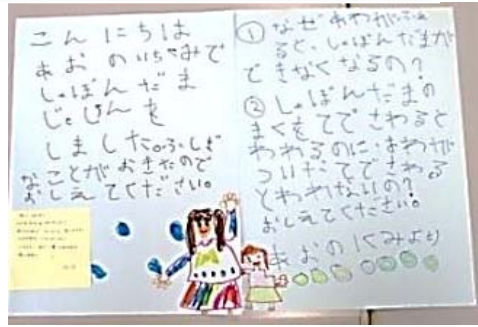 こんにちは
あおのいちくみで
しゃぼんだま
じっけんを
しました。ふしぎ
なことがおきたので
おしえてください。
① なぜあわがふえ
ると、しゃぼんだまが
できなくなるの?
② しゃぼんだまの
まくをてでさわると
われるのに、あわが
ついたてでさわる
とわれないの?
おしえてください。
あおのいくみより